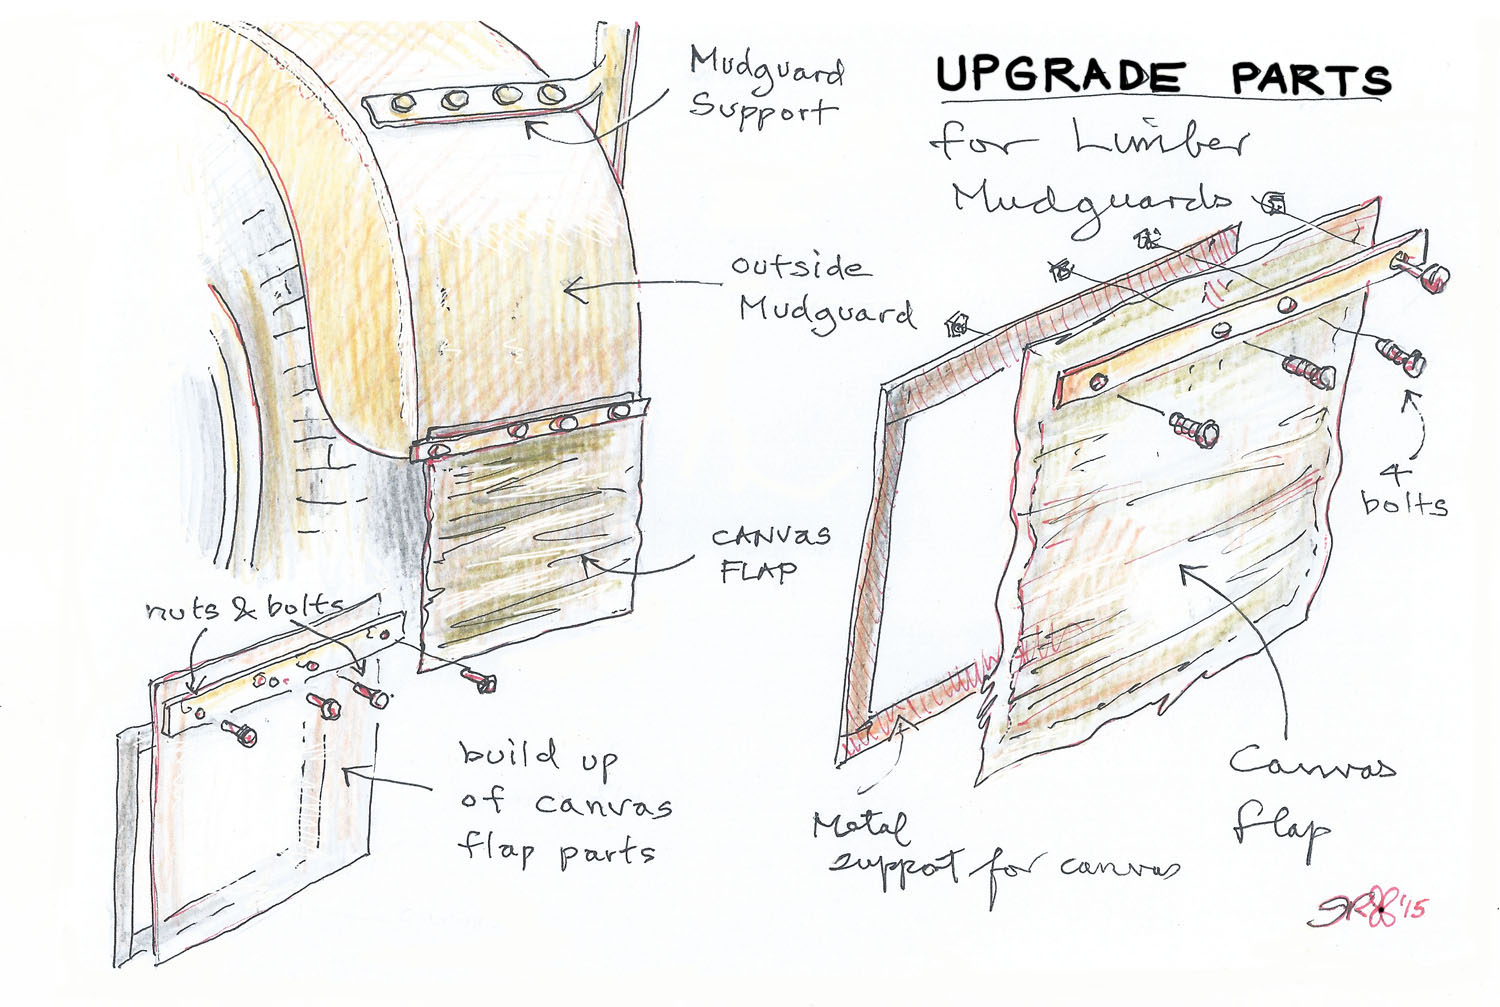 UPGRADE PARTS
for Limber
Mudguards
Mudguard
Support
outside
Mudguard
CANVAS
FLAP
nuts & bolts
build up
of canvas
flap parts
4
bolts
Canvas
flap
Metal
support for canvas
'15